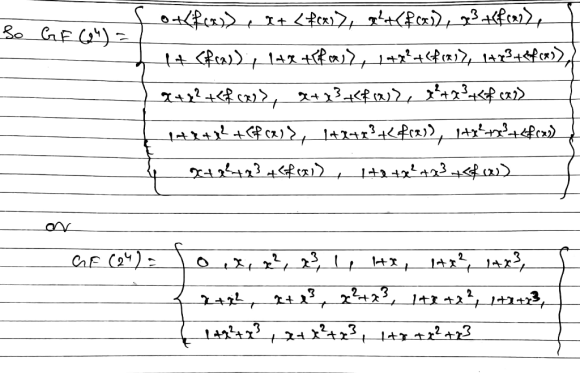 So GF(2⁴) = { 0+<f(x)>, x+<f(x)>, x²+<f(x)>, x³+<f(x)>,
1+<f(x)>, 1+x+<f(x)>, 1+x²+<f(x)>, 1+x³+<f(x)>,
x+x²+<f(x)>, x+x³+<f(x)>, x²+x³+<f(x)>
1+x+x²+<f(x)>, 1+x+x³+<f(x)>, 1+x²+x³+<f(x)>
x+x²+x³+<f(x)>, 1+x+x²+x³+<f(x)> }
or
GF(2⁴) = { 0, x, x², x³, 1, 1+x, 1+x², 1+x³,
x+x², x+x³, x²+x³, 1+x+x², 1+x+x³,
1+x²+x³, x+x²+x³, 1+x+x²+x³ }